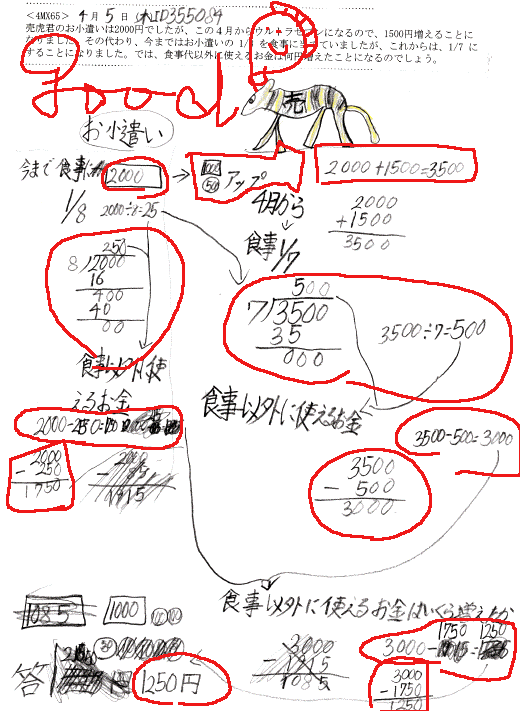 <4MX65> 4月5日 ID355084
売虎君のお小遣いは2000円でしたが、この4月からウルトラセブンになるので、1500円増えることに
なりました。その代わり、今まではお小遣いの 1/8 を食事に当てていましたが、これからは、1/7 に
することになりました。では、食事代以外に使えるお金は何円増えたことになるのでしょう。
Good
売
お小遣い
今まで食事
2000
→
アップ
2000+1500=3500
1/8
2000÷8=25
4月から
↓
食事 1/7
2000
+1500
3500
250
8)2000
16
400
40
00
500
7)3500
35
000
3500÷7=500
食事以外に使
えるお金
2000-250=
2000
-250
1750
2000
- 85
1915
食事以外に使えるお金
3500-500=3000
3500
-500
3000
食事以外に使えるお金はいくら増えたか
1085
1000
答
1250円
3000
1915
1085
1750
1250
3000-
3000
-1750
1250